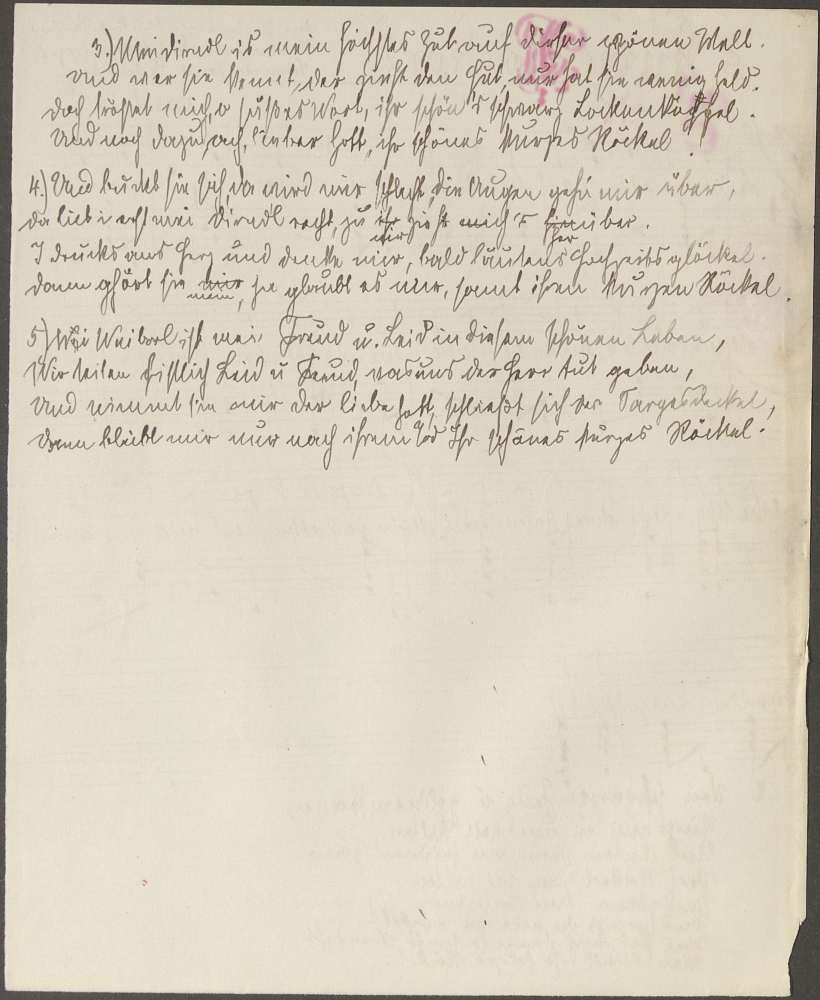 3.) Mei Dirndl is mein höchstes Gut auf dieser schönen Welt.
und wer sie kennt, der zieht den Hut, nur hat sie wenig Geld.
doch tröstet mich, o süßes Wort, ihr schön's schwarz Lockenköpfel.
Und noch dazu, ach, lieber Gott, ihr schönes kurzes Röckel!
4.) Und bückt sie sich, da wird mir schlecht, die Augen gehn mir über,
da lieb i erst mei Dirndl recht, zu ihr zieht mich's hinüber.
mir her
I drucks ans Herz und denke mir, bald läutens Hochzeitsglöckel.
dann ghört sie mir, ja glaubt es mir, samt ihren kurzen Röckel.
mein
5.) Mei Weiberl ist mei Freud u. Leid in diesem schönen Leben,
Wir teilen christlich Leid u Freud, was uns der Herr tut geben,
Und nimmt sie mir der liebe Gott, schließt sich der Sargesdeckel,
dann bleibt mir nur nach ihrem Tod Ihr schönes kurzes Röckel.